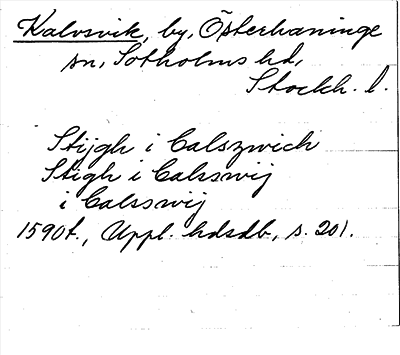 Kalvsvik, by, Österhaninge
sn, Sotholms hd,
Stockh. l.
Stijgh i Calszwich
Stigh i Calsswij
i Calsswij
1590t., Uppl. hdsdb, s. 201.